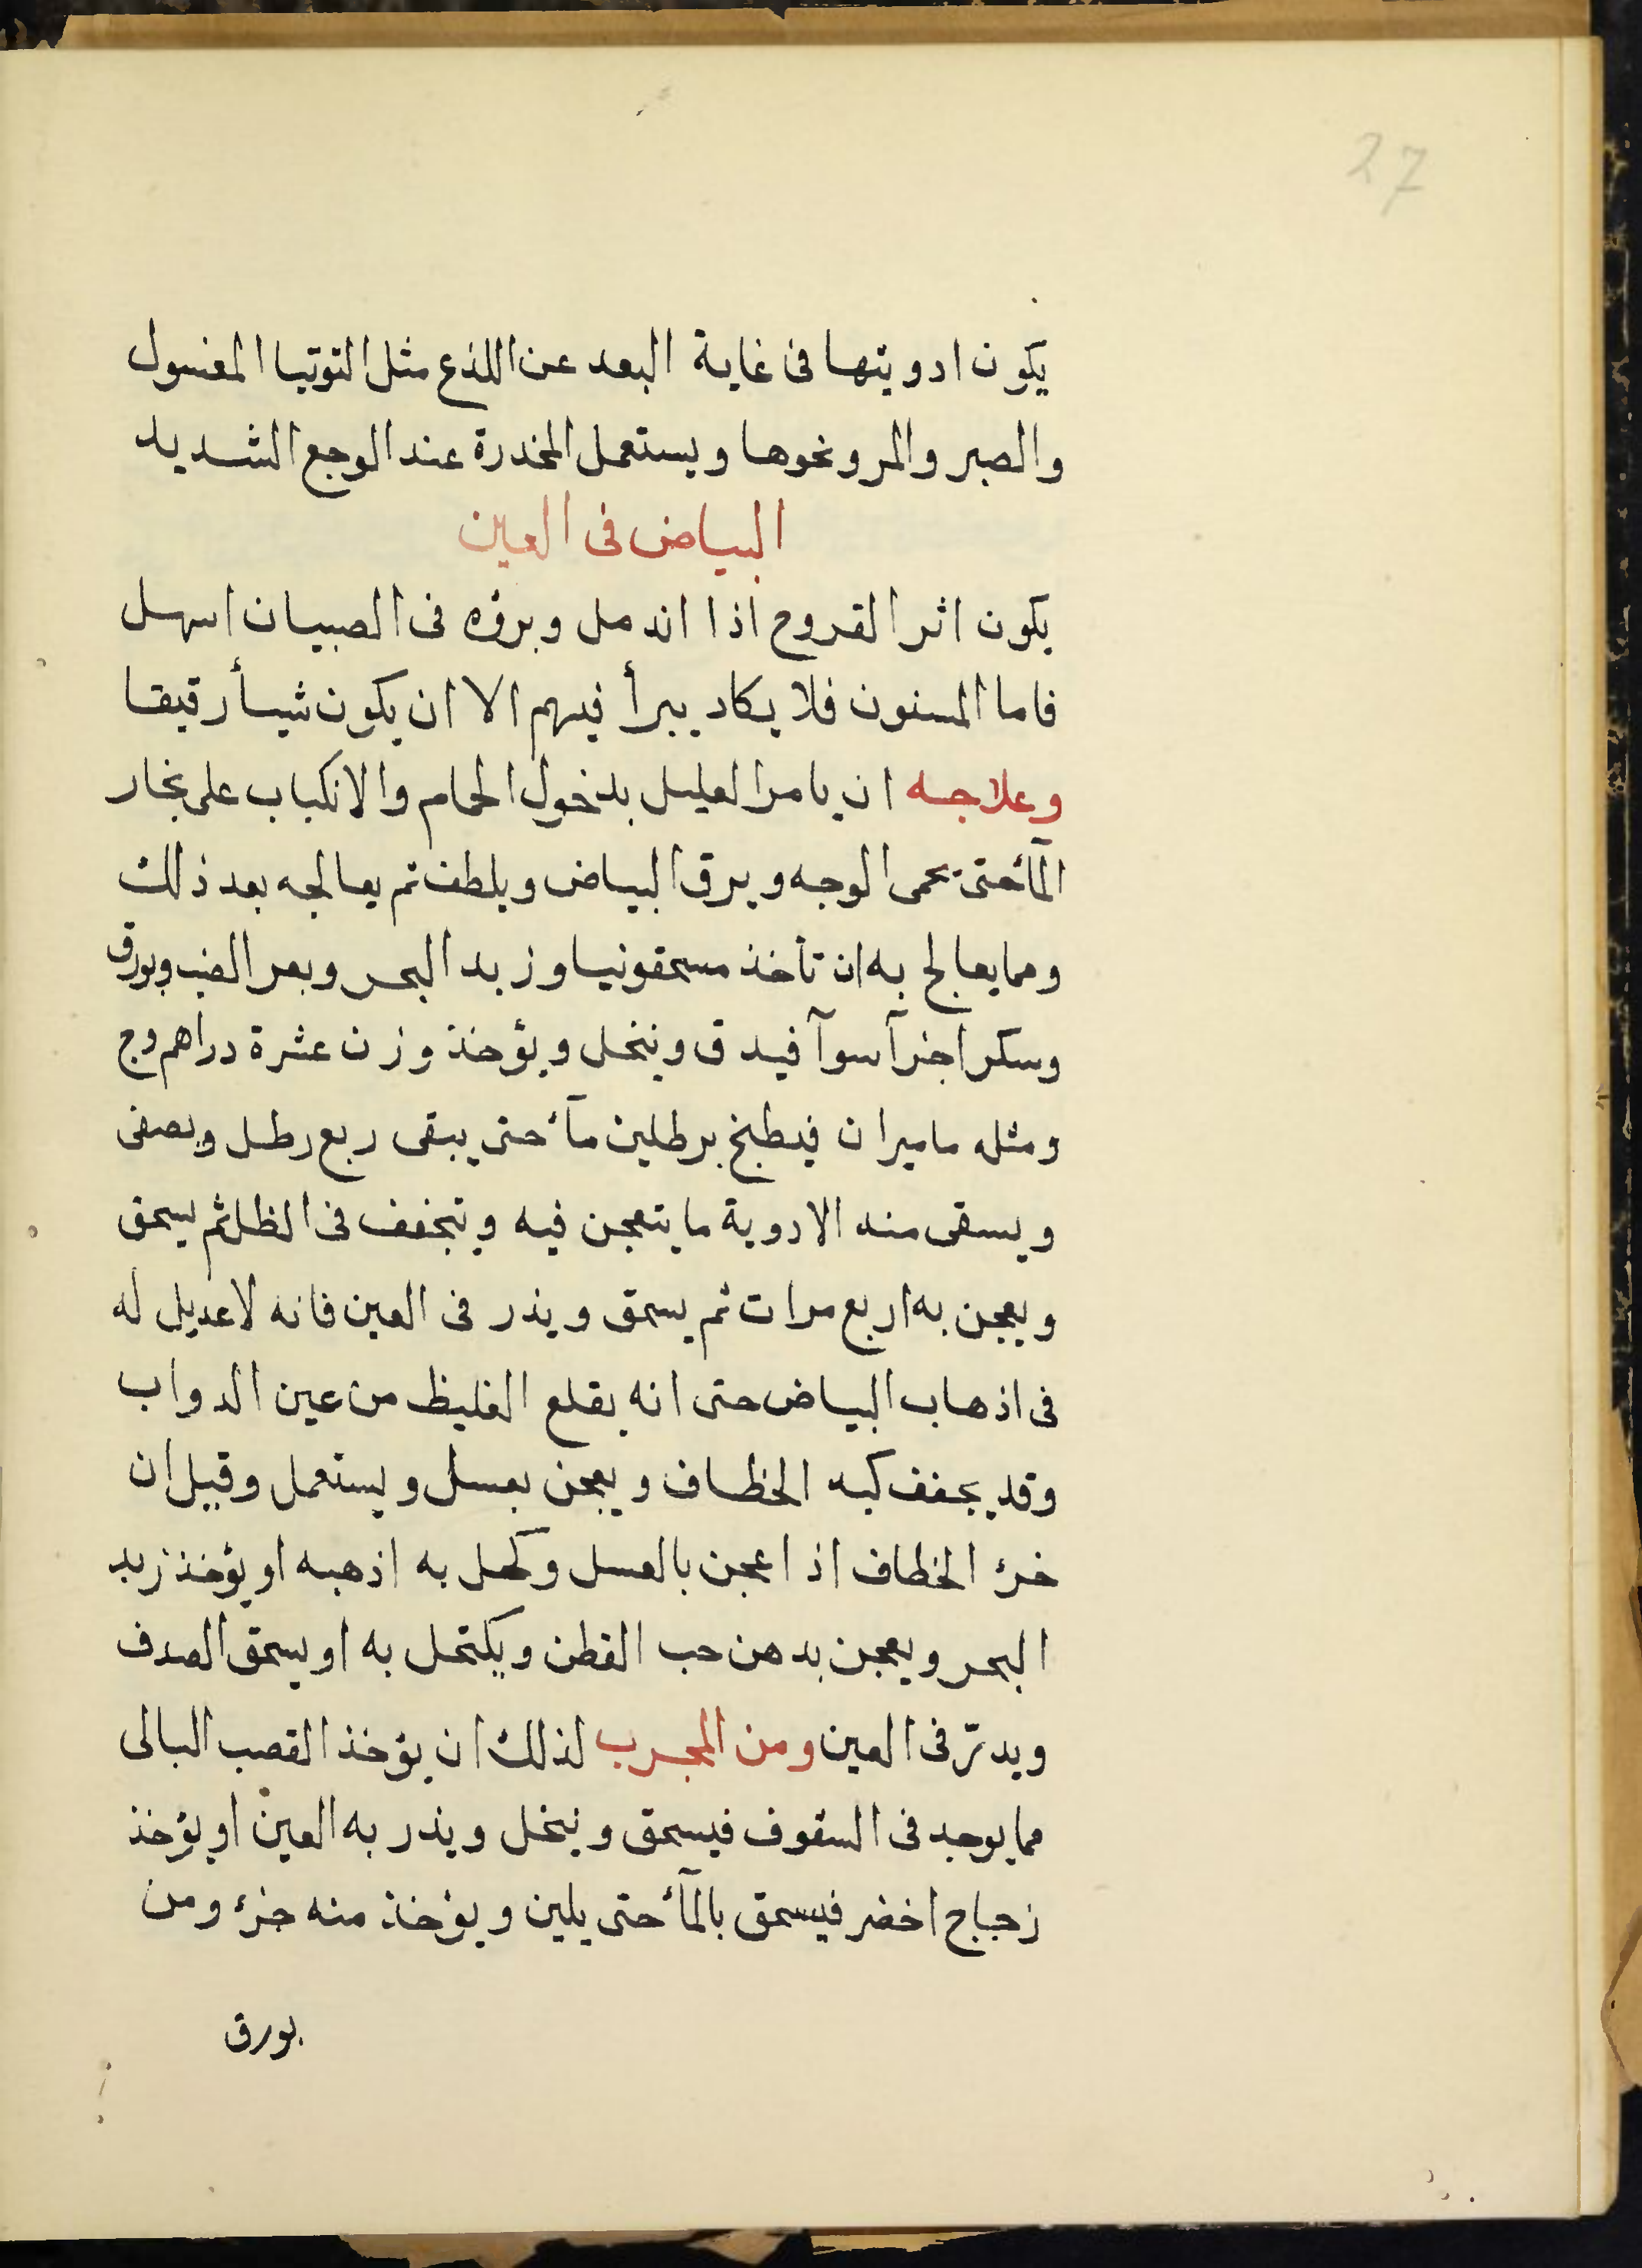 27
يكون ادويتها فى غاية البعد عن اللذع مثل التوتيا المغسول
والصبر والمر ونحوها ويستعمل المخدرة عند الوجع الشديد
البياض فى العين
يكون اثر القروح اذا اندمل وبرؤه فى الصبيان اسهل
فاما المسنون فلا يكاد يبرأ فيهم الا ان يكون شيأ رقيقا
وعلاجه ان يامر العليل بدخول الحمام والانكباب على بخار
المآء حتى يحمى الوجه ويرق البياض ويلطف ثم يعالجه بعد ذلك
ومما يعالج به ان تأخذ مسحقونيا وزبد البحر وبعر الضب وبورق
وسكر اجزآ سوآ فيدق وينخل ويؤخذ وزن عشرة دراهم وج
ومثله ماميران فيطبخ برطلين مآء حتى يبقى ربع رطل ويصفى
ويسقى منه الادوية ما يتعجن فيه ويتجفف فى الظل ثم يسحق
ويعجن به اربع مرات ثم يسحق ويذر فى العين فانه لا عديل له
فى اذهاب البياض حتى انه يقلع الغليظ من عين الدواب
وقد يجفف كبه الخطاف ويعجن بعسل ويستعمل وقيل ان
خرء الخطاف اذا عجن بالعسل وكحل به اذهبه او يؤخذ زبد
البحر ويعجن بدهن حب القطن ويكتحل به او يسحق الصدف
ويدترّ فى العين ومن المجرب لذلك ان يؤخذ القصب البالى
مما يوجد فى السقوف فيسحق وينخل ويذر به العين او يؤخذ
زجاج اخضر فيسحق بالمآء حتى يلين ويؤخذ منه جزء ومن
بورق